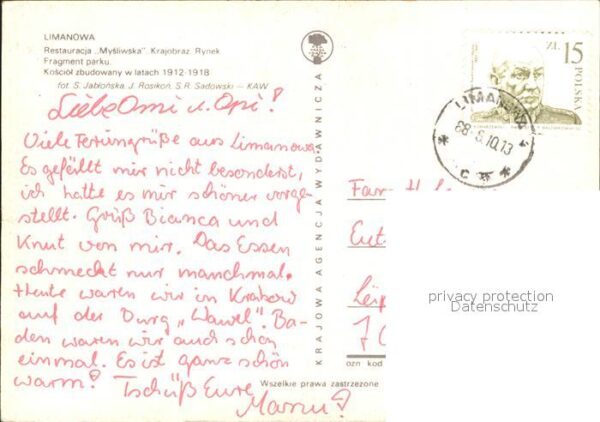 LIMANOWA
Restauracja „Myśliwska". Krajobraz. Rynek.
Fragment parku.
Kościół zbudowany w latach 1912-1918
fot. S. Jabłońska, J. Rosikoń, S.R. Sadowski — KAW
Liebe Omi u. Opi!
Viele Feriengrüße aus Limanowa
Es gefällt mir nicht besonderst,
ich hatte es mir schöner vorge-
stellt. Grüß Bianca und
Knut von mir. Das Essen
schmeckt nur manchmal.
Heute waren wir in Krakow
auf der Burg „Wawel". Ba-
den waren wir auch schon
einmal. Es ist ganz schön
warm! Tschüß Eure
KRAJOWA AGENCJA WYDAWNICZA
ZŁ 15
POLSKA
LIMANOWA
88
10.13
Fam.
Eut
Leip
70
ozn kod
Wszelkie prawa zastrzeżone
privacy protection
Datenschutz